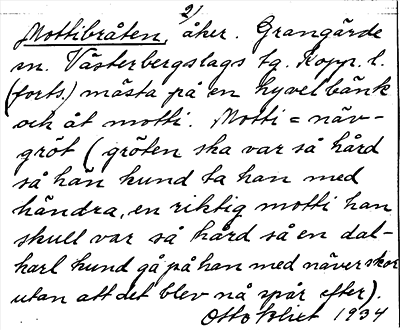 2)
Mottibråten, åker. Grangärde
sn. Västerbergslags tg. Kopp. l.
(forts.) mästa på en hyvelbänk
och åt motti. Motti = näv-
gröt (gröten ska var så hård
så han kund ta han med
händra, en riktig motti han
skull var så hård så en dal-
karl kund gå på han med näverskor
utan att det blev nå spår efter).
Otto 1934